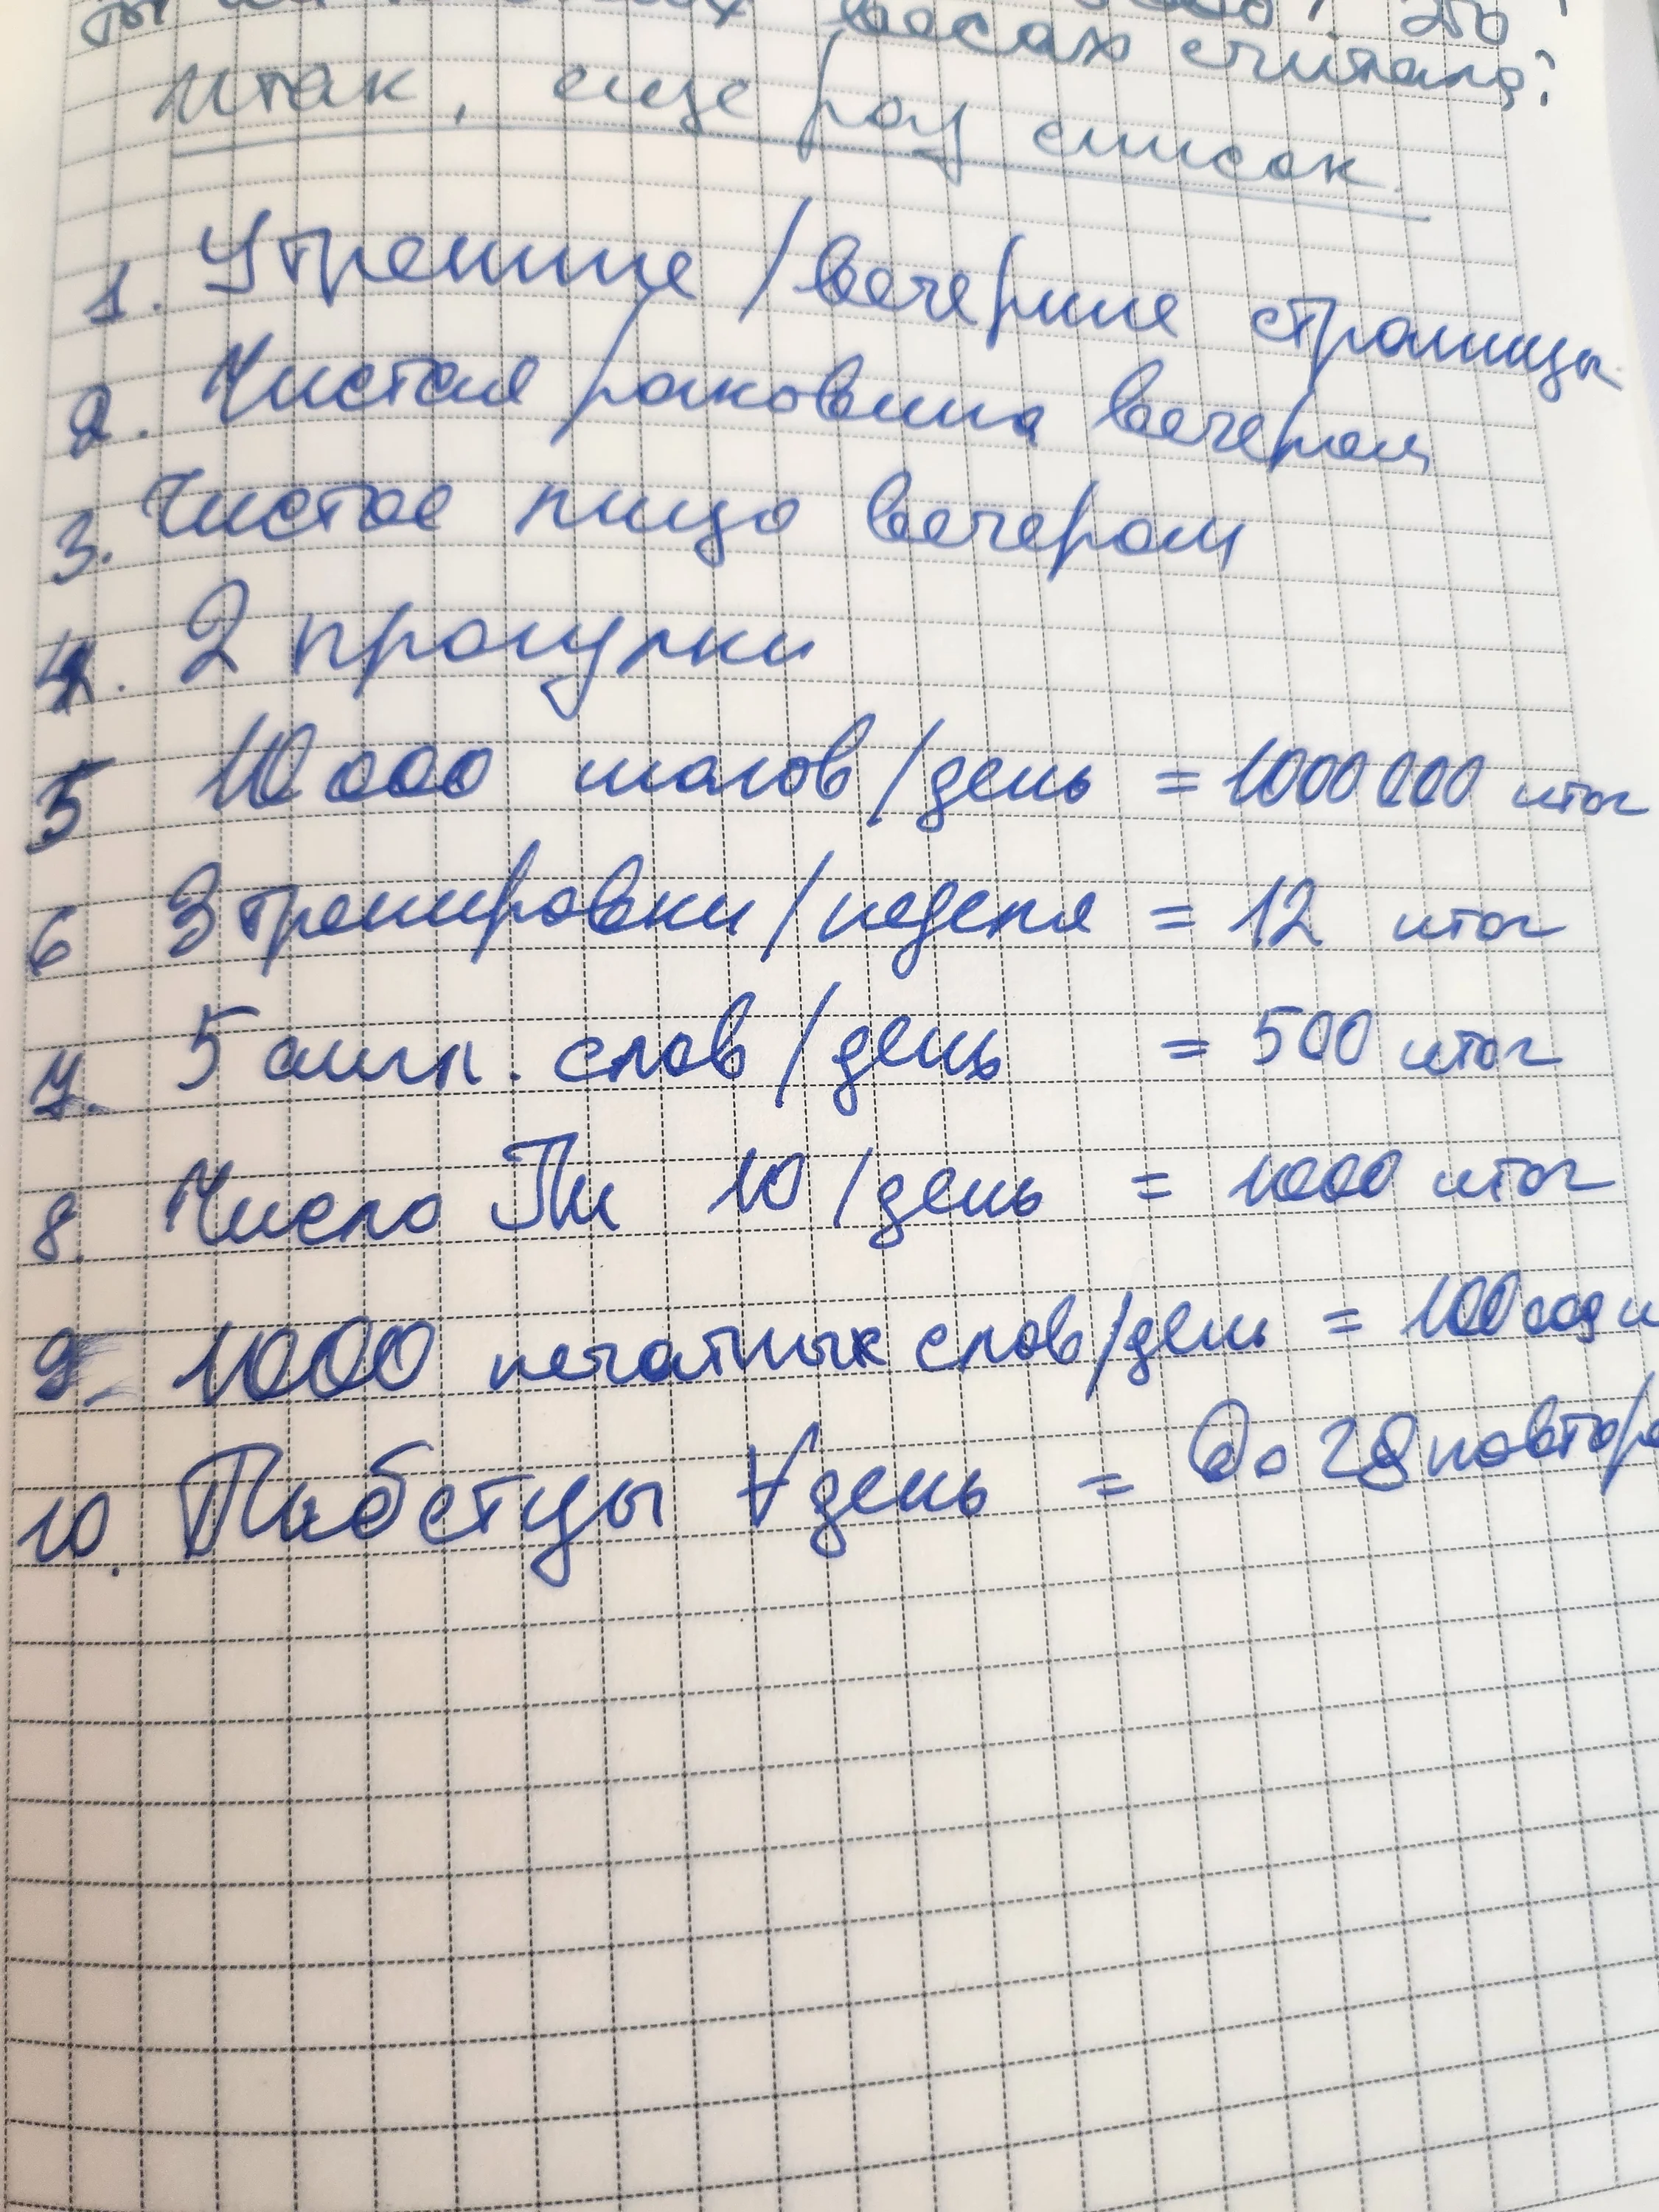 весах считала?
итак, еще раз список.
1. Утренние/вечерние страницы
2. Чистая раковина вечером
3. Чистое лицо вечером
4. 2 прогулки
5 10 000 шагов/день = 1000 000 итог
6 3 тренировки/неделя = 12 итог
7. 5 англ. слов/день = 500 итог
8. Число Пи 10/день = 1000 итог
9. 1000 печатных слов/день = 100
10. Тибетцы ∀день = До 28 повтор